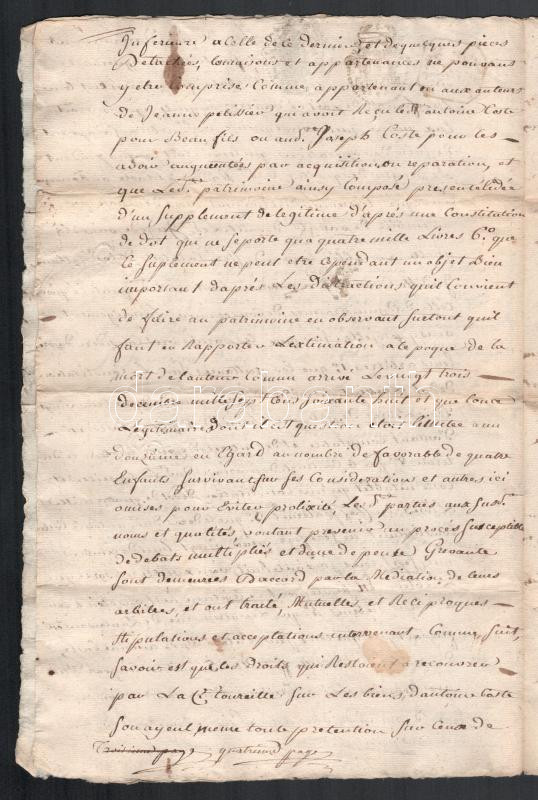 Inferieure a Celle de ce dernier, et de quelques pieces
Detachées, tonaisons et appartenances ne pouvans
y etre comprises Comme appartenant aux auteurs
de Jeanne pelissier qui avoit Reçu led. antoine Coste
pour Beau fils ou aud. Joseph Coste pour les
avoir augmentées par acquisition ou reparation, et
que Led. patrimoine ainsy Composé presentel'idée
d'un Supplement de legitime d'aprés une Constitution
de dot qui ne se porte qu'a quatre mille Livres 6.° que
Ce Suplement ne peut etre cependant un objet Bien
important d'aprés Les Distractions qu'il Convient
de faire au patrimoine en observant surtout qu'il
faut en Rapporter L'extimation a l'epoque de la
mort de l'auteur Commun arrivé Le vingt trois
decembre mille Sept Cens soixante huit et que la
Legitimaire dont il est question etoit limitée a un
douzieme en Egard au nombre de favorable de quatre
Enfants Survivant, sur ses Considerations et autres ici
omises pour Eviter prolixité, Les d. parties aux sus d.
noms et qualités voulant prevenir un procès Susceptible
de debats multipliés et d'une depense Grevante
sont demeurées D'accord par la Mediation de leurs
arbitres, et ont traité, Mutuelles, et Reciproques
Stipulations et acceptations intervenant, Comme Suit,
Savoir est que les Droits qui Restoient a recouvrer
par La C. toureille Sur Les biens d'antoine Coste
Son ayeul meme toute pretention Sur Ceux de
Troisieme page quatrieme page
darabanth